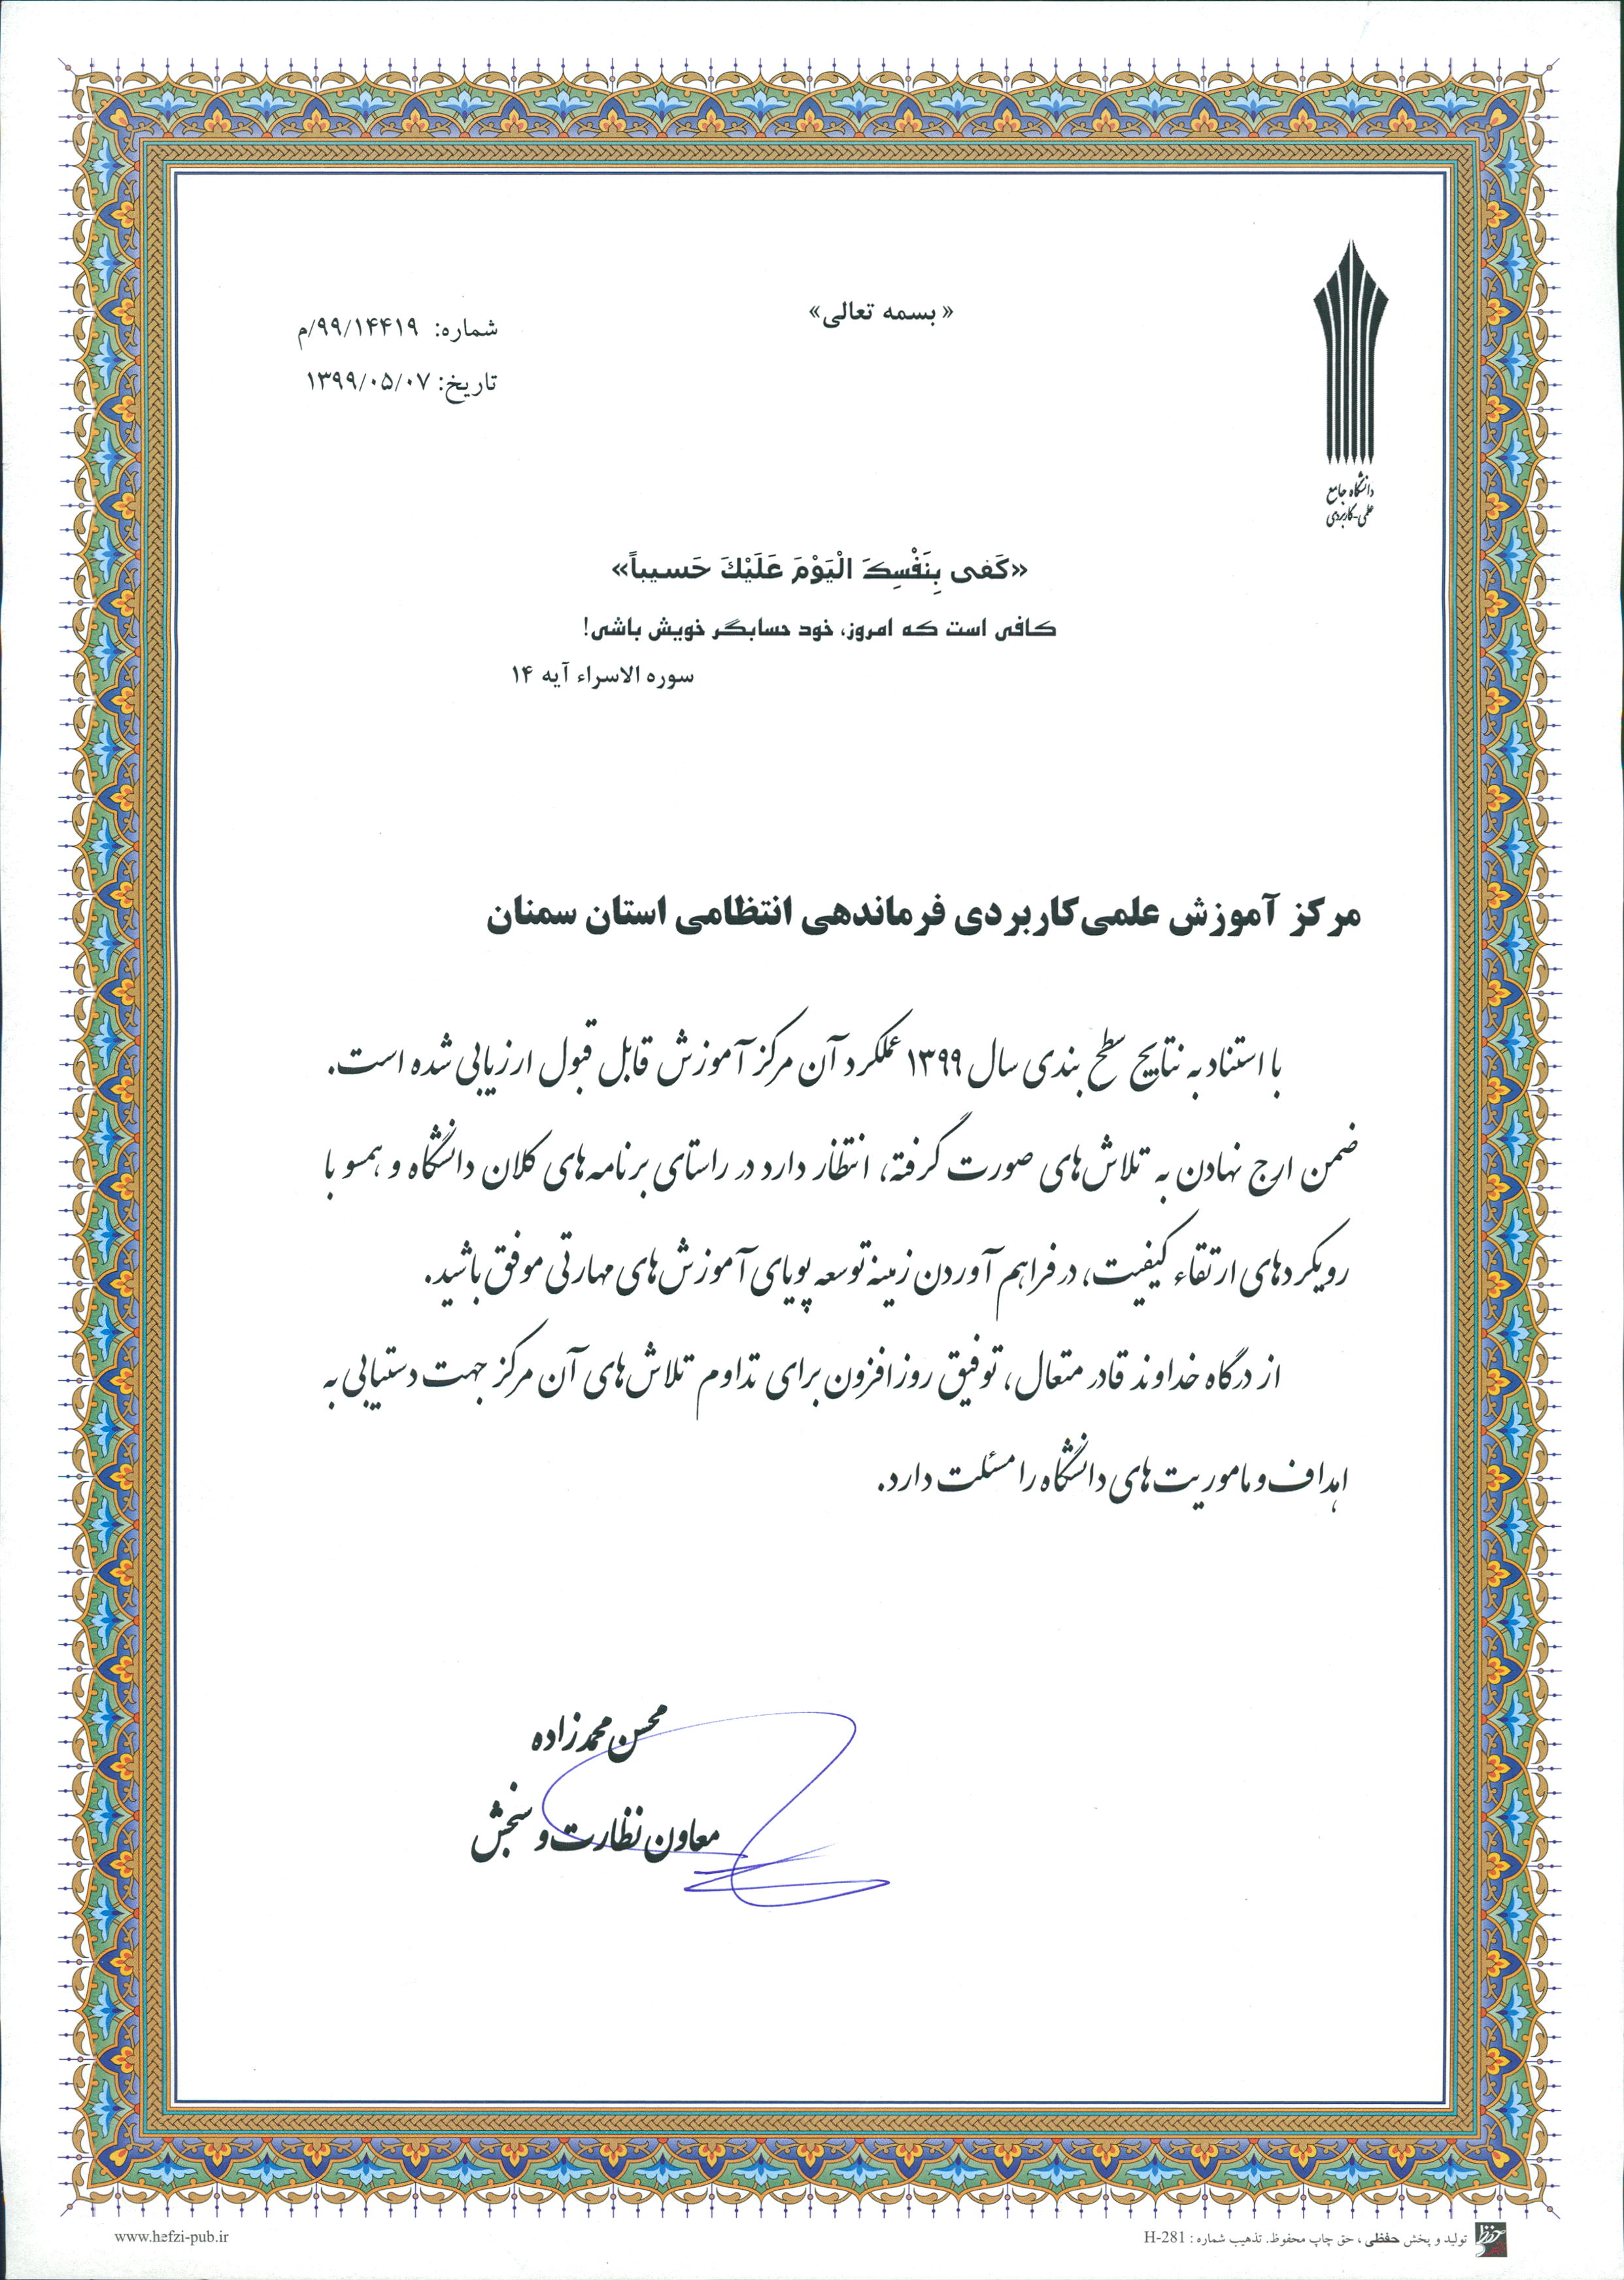 « بسمه تعالی»
شماره: ۹۹/۱۴۴۱۹/م
تاریخ: ۱۳۹۹/۰۵/۰۷
دانشگاه جامع
علمی-کاربردی
«كَفى بِنَفْسِكَ الْيَوْمَ عَلَيْكَ حَسيباً»
کافی است که امروز، خود حسابگر خویش باشی!
سوره الاسراء آیه ۱۴
مرکز آموزش علمی‌کاربردی فرماندهی انتظامی استان سمنان
با استناد به نتایج سطح بندی سال ۱۳۹۹ عملکرد آن مرکز آموزش قابل قبول ارزیابی شده است.
ضمن ارج نهادن به تلاش‌های صورت گرفته، انتظار دارد در راستای برنامه‌های کلان دانشگاه و همسو با
رویکردهای ارتقاء کیفیت، در فراهم آوردن زمینه توسعه پویای آموزش‌های مهارتی موفق باشید.
از درگاه خداوند قادر متعال، توفیق روزافزون برای تداوم تلاش‌های آن مرکز جهت دستیابی به
اهداف و ماموریت‌های دانشگاه را مسئلت دارد.
محسن محمدزاده
معاون نظارت و سنجش
تولید و پخش حفظی ، حق چاپ محفوظ. تذهیب شماره : H-281
www.hefzi-pub.ir